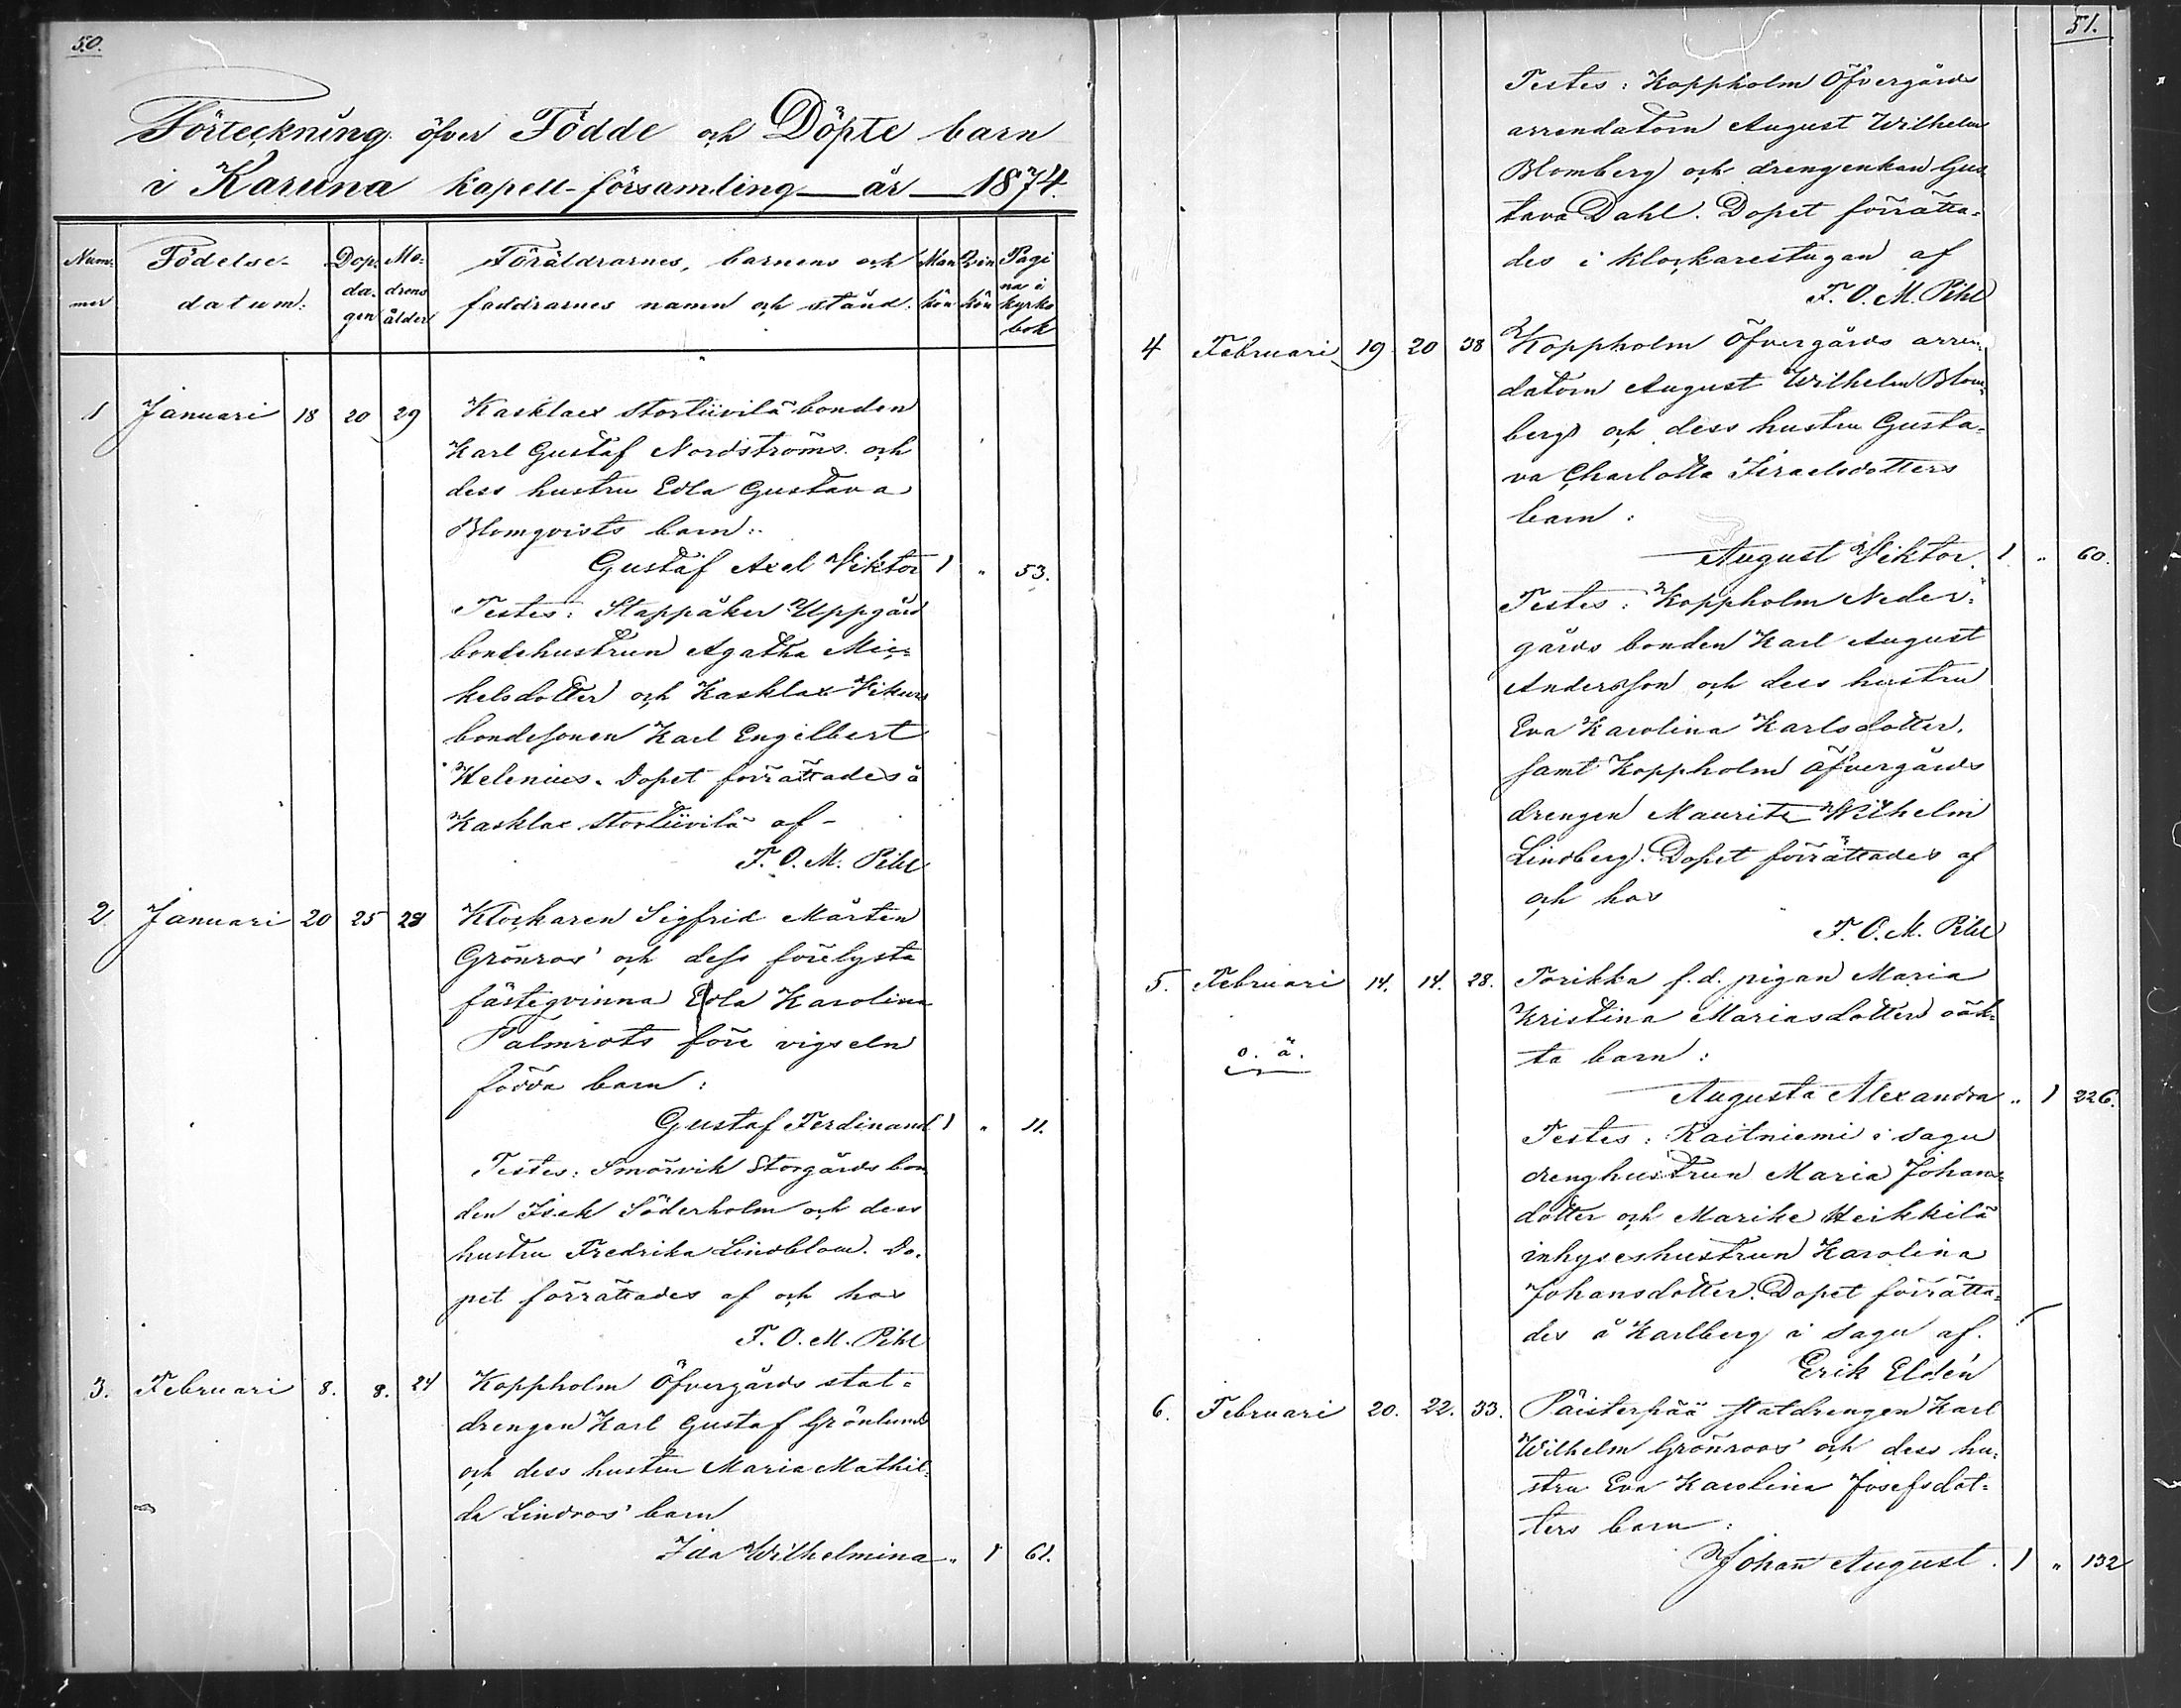 50.
Förteckning öfver Födde och Döpte barn
i Karuna kapell-församling år 1874.
Num-
mer
Födelse-
datum:
Dop-
da-
gen
Mo-
drens
ålder
Föräldrarnes, barnens och
faddrarnes namn och stånd.
Man
kön
Qvin
kön
Pagi
na i
kyrko
bok
1 Januari 18 20 29 Kasklax Stortiivilä bonden
Karl Gustaf Nordströms och
dess hustru Edla Gustava
Blomqvists barn:
Gustaf Axel Viktor 1 " 53.
Testes: Stappåker Uppgård
bondehustrun Agatha Mic-
kelsdotter och Kasklax Vikurs
bondesonen Karl Engelbert
Helenius. Dopet förrättades å
Kasklax Stortiivilä af -
F. O. M. Pihl
2. Januari 20 25 28 Klockaren Sigfrid Mårten
Grönros' och dess förelysta
fästeqvinna Edla Karolina
Palmrots före vigseln
födda barn:
Gustaf Ferdinand 1 " 11.
Testes: Smörvik Storgårds bon
den Isak Söderholm och dess
hustru Fredrika Lindblom. Do-
pet förrättades af och hos
F. O. M. Pihl
3. Februari 8. 8. 24 Koppholm Öfvergårds stat-
drengen Karl Gustaf Grönlunds
och dess hustru Maria Mathil-
da Lindroos' barn
Ida Wilhelmina " 1 61.
51.
Testes: Koppholm Öfvergårds
arrendatorn August Wilhelm
Blomberg och drengenkan Gus
tava Dahl. Dopet förrätta-
des i klockarestugan af
F. O. M. Pihl
4 Februari 19 20 38 Koppholm Öfvergårds arren-
datorn August Wilhelm Blom-
bergs och dess hustru Gusta-
va Charlotta Israelsdotters
barn:
August Viktor. 1. " 60.
Testes: Koppholm Neder-
gårds bonden Karl August
Andersson och dess hustru
Eva Karolina Karlsdotter,
samt Koppholm Öfvergårds
drengen Mauritz Wilhelm
Lindberg. Dopet förrättades af
och hos
F. O. M. Pihl
5. Februari 14. 14. 28. Torikka f.d. pigan Maria
Kristina Mariasdotters oäk-
o. ä.
ta barn:
Augusta Alexandra " 1 226.
Testes: Raitniemi i Sagu
drenghustrun Maria Johans-
dotter och Marike Heikkilä
inhyseshustrun Karolina
Johansdotter. Dopet förrätta-
des å Karlberg i Sagu af.
Erik Eldén
6. Februari 20. 22. 33. Päisterpää statdrengen Karl
Wilhelm Grönroos' och dess hu-
stru Eva Karolina Josefsdot-
ters barn:
Johan August. 1 " 132